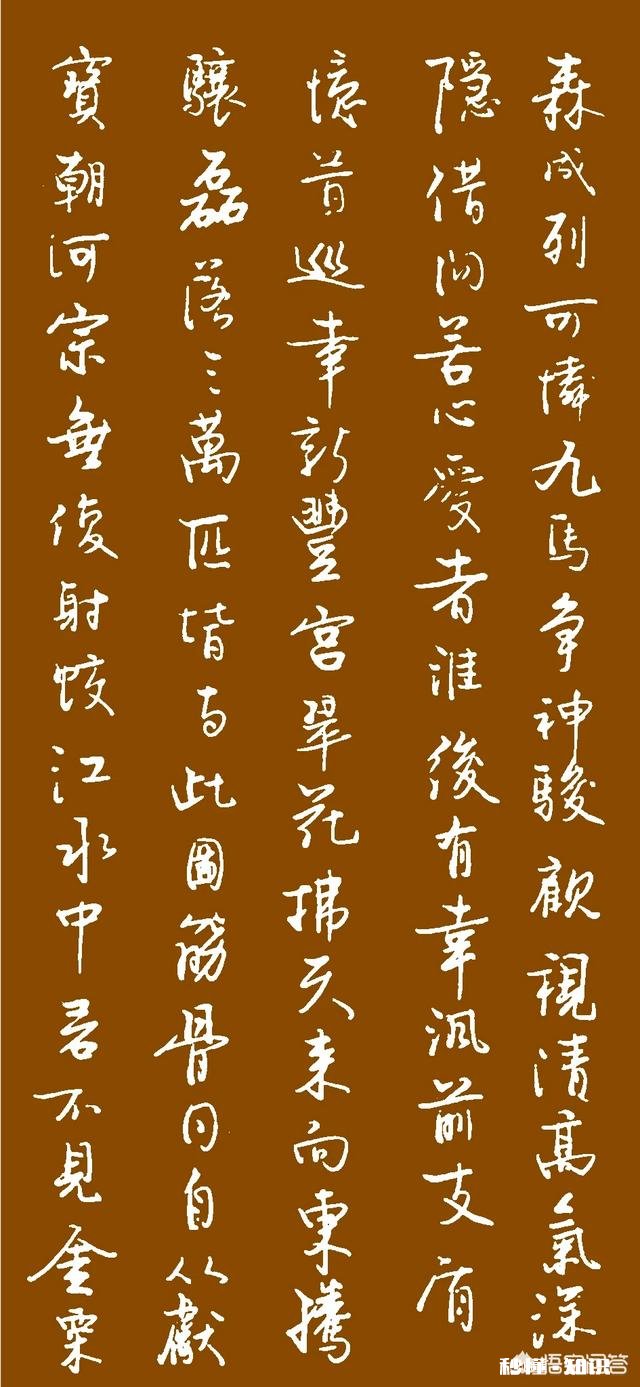 森成列可憐九馬争神駿顧視清高氣深
隱借问苦心愛者誰後有幸諷前支盾
憶昔巡幸新豐宮翠花拂天来向東騰
驤磊落三萬匹皆与此圖筋骨同自从獻
寳朝河宗無復射蛟江水中君不見金粟
悟空问答
秒懂·知识